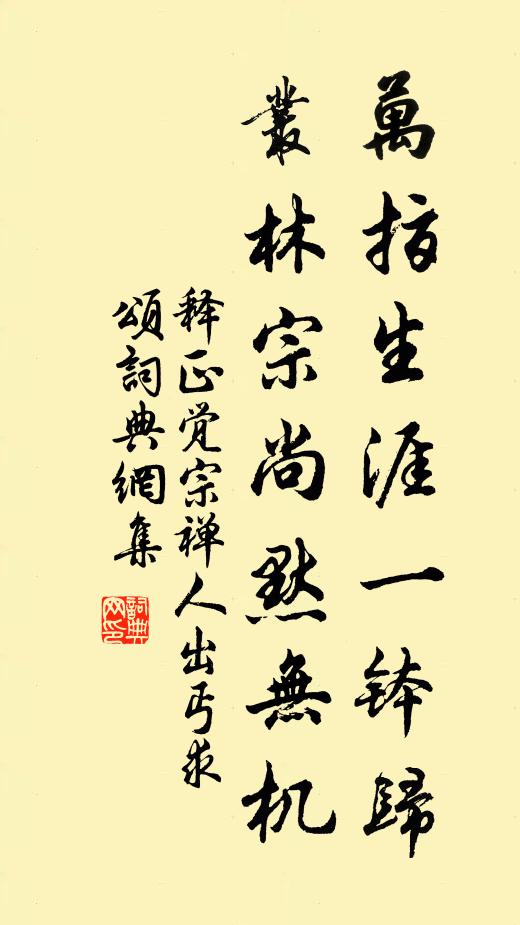 萬指生涯一鉢歸
叢林宗尚默無机
释正觉宗禅人出丐求
頌詞典網集
詞典网印